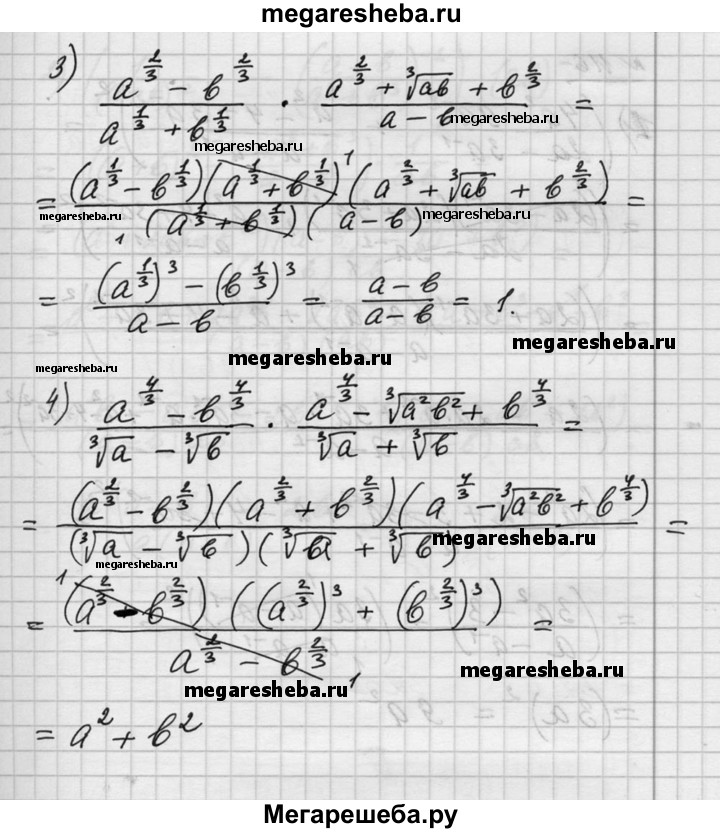 megaresheba.ru
3) (a^(2/3) − b^(2/3))/(a^(1/3) + b^(1/3)) · (a^(2/3) + ∛ab + b^(2/3))/(a − b) =
megaresheba.ru megaresheba.ru
= ((a^(1/3) − b^(1/3))(a^(1/3) + b^(1/3))^1 (a^(2/3) + ∛ab + b^(2/3)))/(1 (a^(1/3) + b^(1/3))(a − b)) =
megaresheba.ru megaresheba.ru
= ((a^(1/3))^3 − (b^(1/3))^3)/(a − b) = (a − b)/(a − b) = 1.
megaresheba.ru megaresheba.ru
megaresheba.ru
4) (a^(4/3) − b^(4/3))/(∛a − ∛b) · (a^(4/3) − ∛(a²b²) + b^(4/3))/(∛a + ∛b) =
= ((a^(2/3) − b^(2/3))(a^(2/3) + b^(2/3))(a^(4/3) − ∛(a²b²) + b^(4/3)))/((∛a − ∛b)(∛a + ∛b)) =
megaresheba.ru
= (1 (a^(2/3) − b^(2/3))((a^(2/3))^3 + (b^(2/3))^3))/(a^(2/3) − b^(2/3) 1) =
megaresheba.ru megaresheba.ru
= a² + b²
Мегарешеба.ру